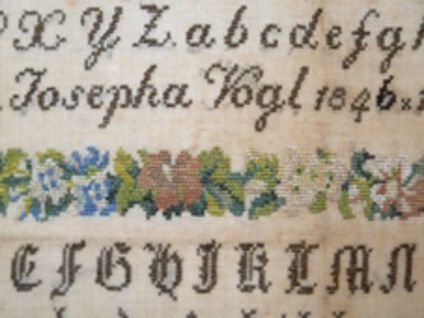 X Y Z a b c d e f g
Josepha Vogl 1846
E F G H I K L M N